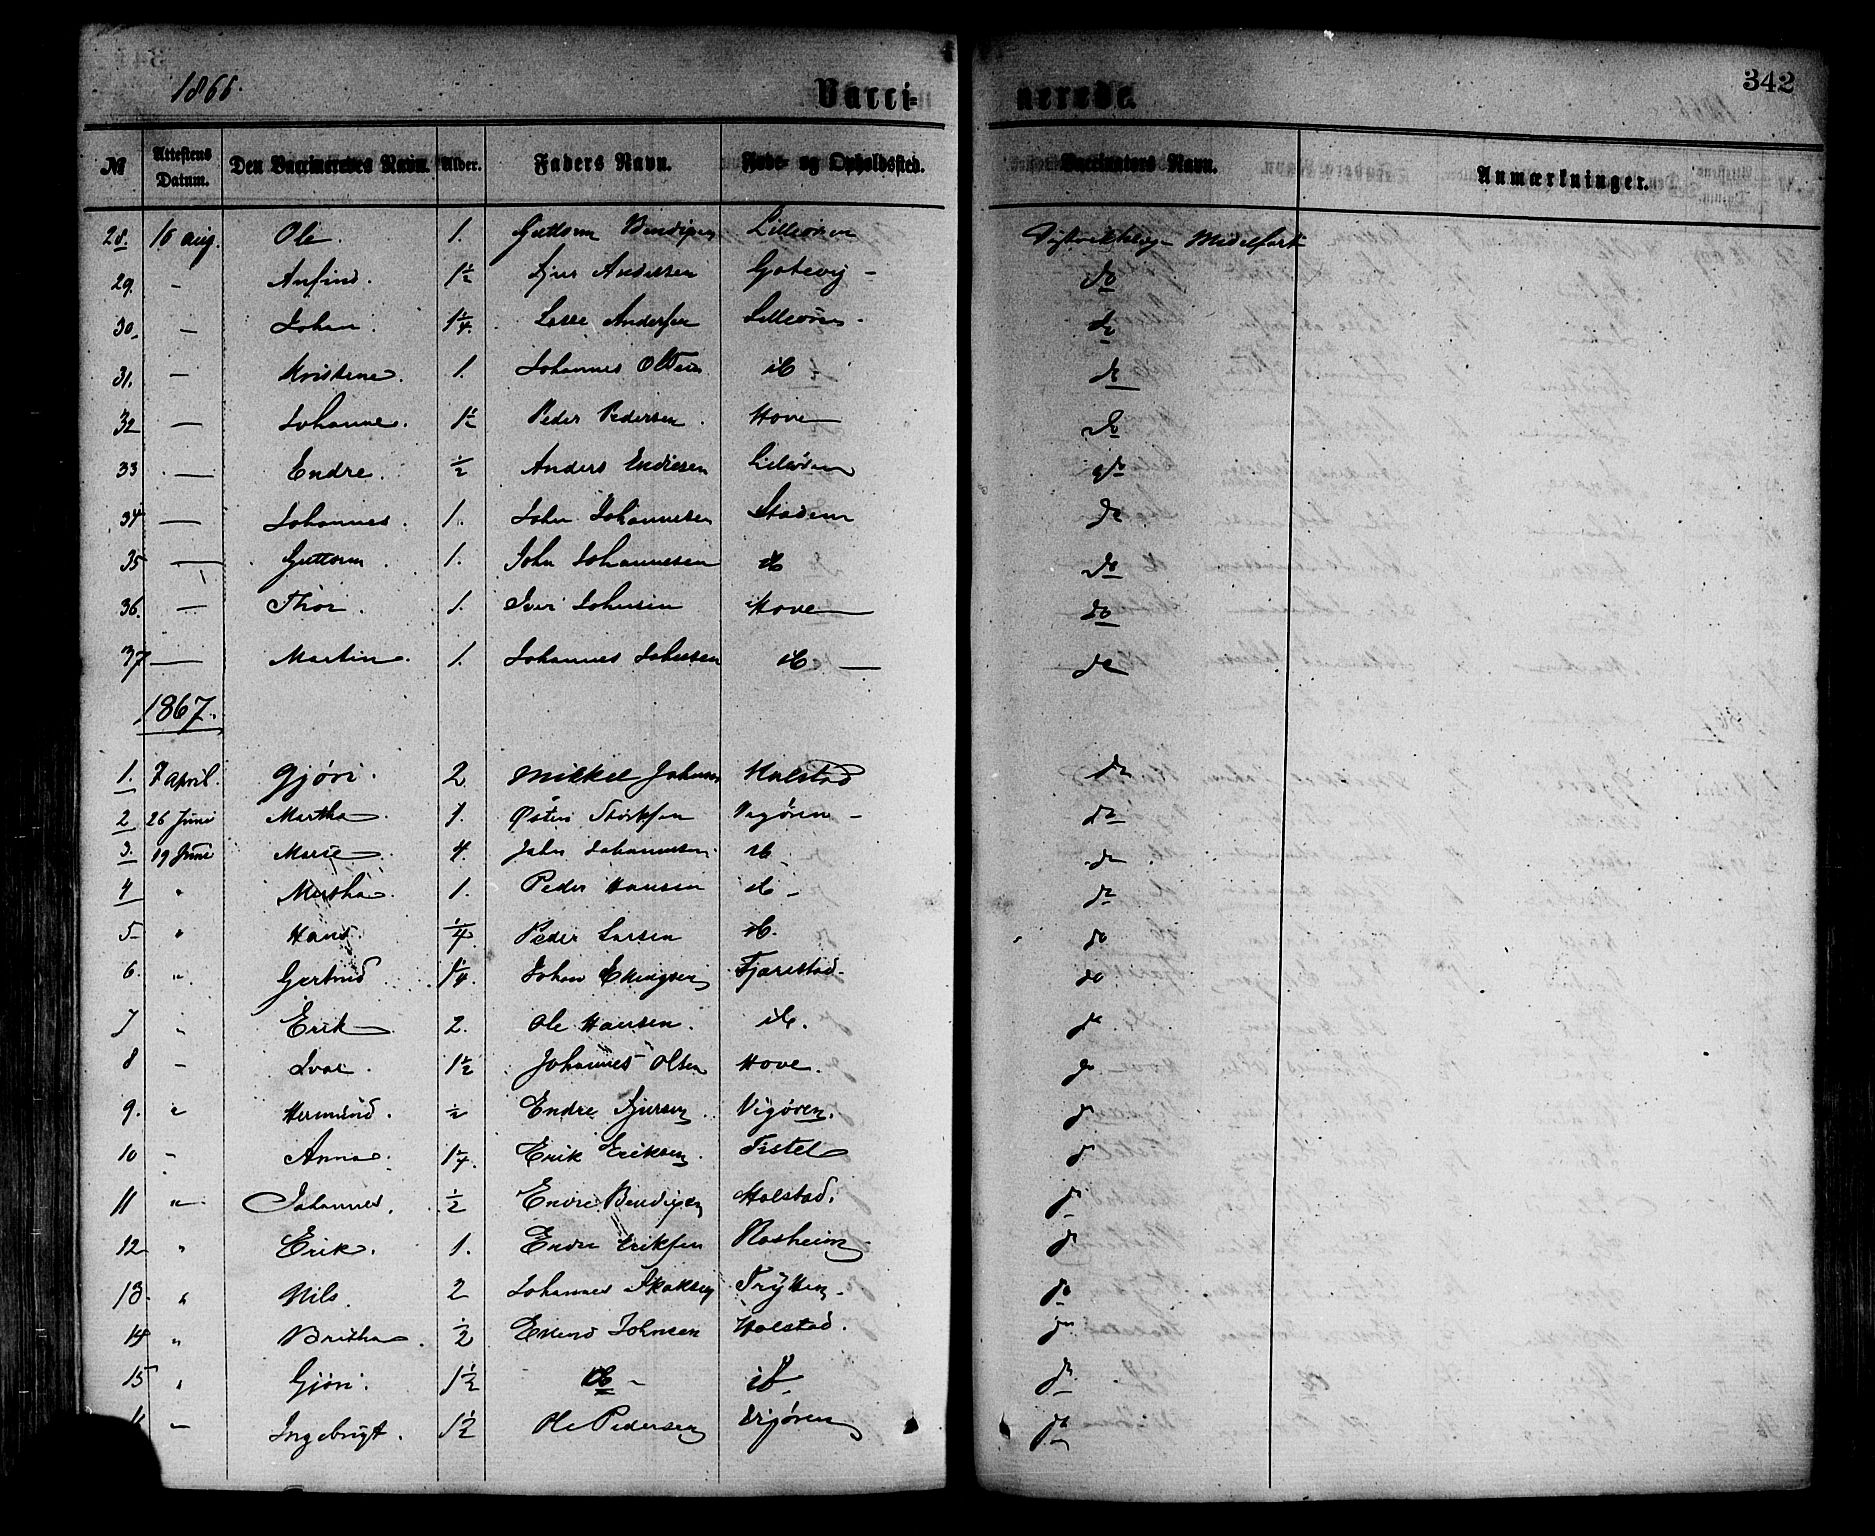 342
1866.
Vacci- nerede.
№ Attestens Datum. Den Vaccineredes Navn. Alder. Faders Navn. Føde- og Opholdssted. Vaccinators Navn. Anmærkninger.
28. 16 aug. Ole. 1. Guttorm Lilleøren Medelfart
29. - Anfind. 1½ Sjur Andersen -  do
30. - Johan. 1¼ Lasse Andersen - do
31. — Kristine. 1. Johannes Olsen ib do
32 — Johanne. 1½ Peder Pedersen. Hove do
33 — Endre. ½ Anders Endresen do
34 — Johannes. 1. John Johannesen Stadem do
35 — Guttorm 1. John Johannesen ib do
36. — Thor. 1. Iver Johnsen Hove do
37 — Martin. 1. Johannes Johnsen ib — do
1867.
1. 7 April. Gjøri. 2 Mikkel Johnsen Halstad do
2 26 Juni Martha. 1. Østen Vigøren - do
3. 19 Juni 4. John Johannesen ib do
4 " Martha. 1. Peder Hansen ib - do
5 " Hans. ¼ Peder Larsen ib. do
6. " Gertrud. 1¼ Johan Fjarestad. do
7 " Erik 2. Ole Hansen. ib. do
8 - Ivar. 1½ Johannes Olsen Hove. do
9. " Hermund. ½ Endre Sjursen. Vigøren. do
10 - Anna. 1¼ Erik Eriksen. Tistel do
11 " Johannes. ½ Endre Halstad. do
12 " Erik. 1. Endre Eriksen do
13. " Nils. 2 Johannes Trytten. do
14 " Britha. ½ Erend Johnsen Halstad. do
15 " Gjøri. 1½ ib - ib do
- Ingebrigt. 1½ Ole Pedersen Vigøren do